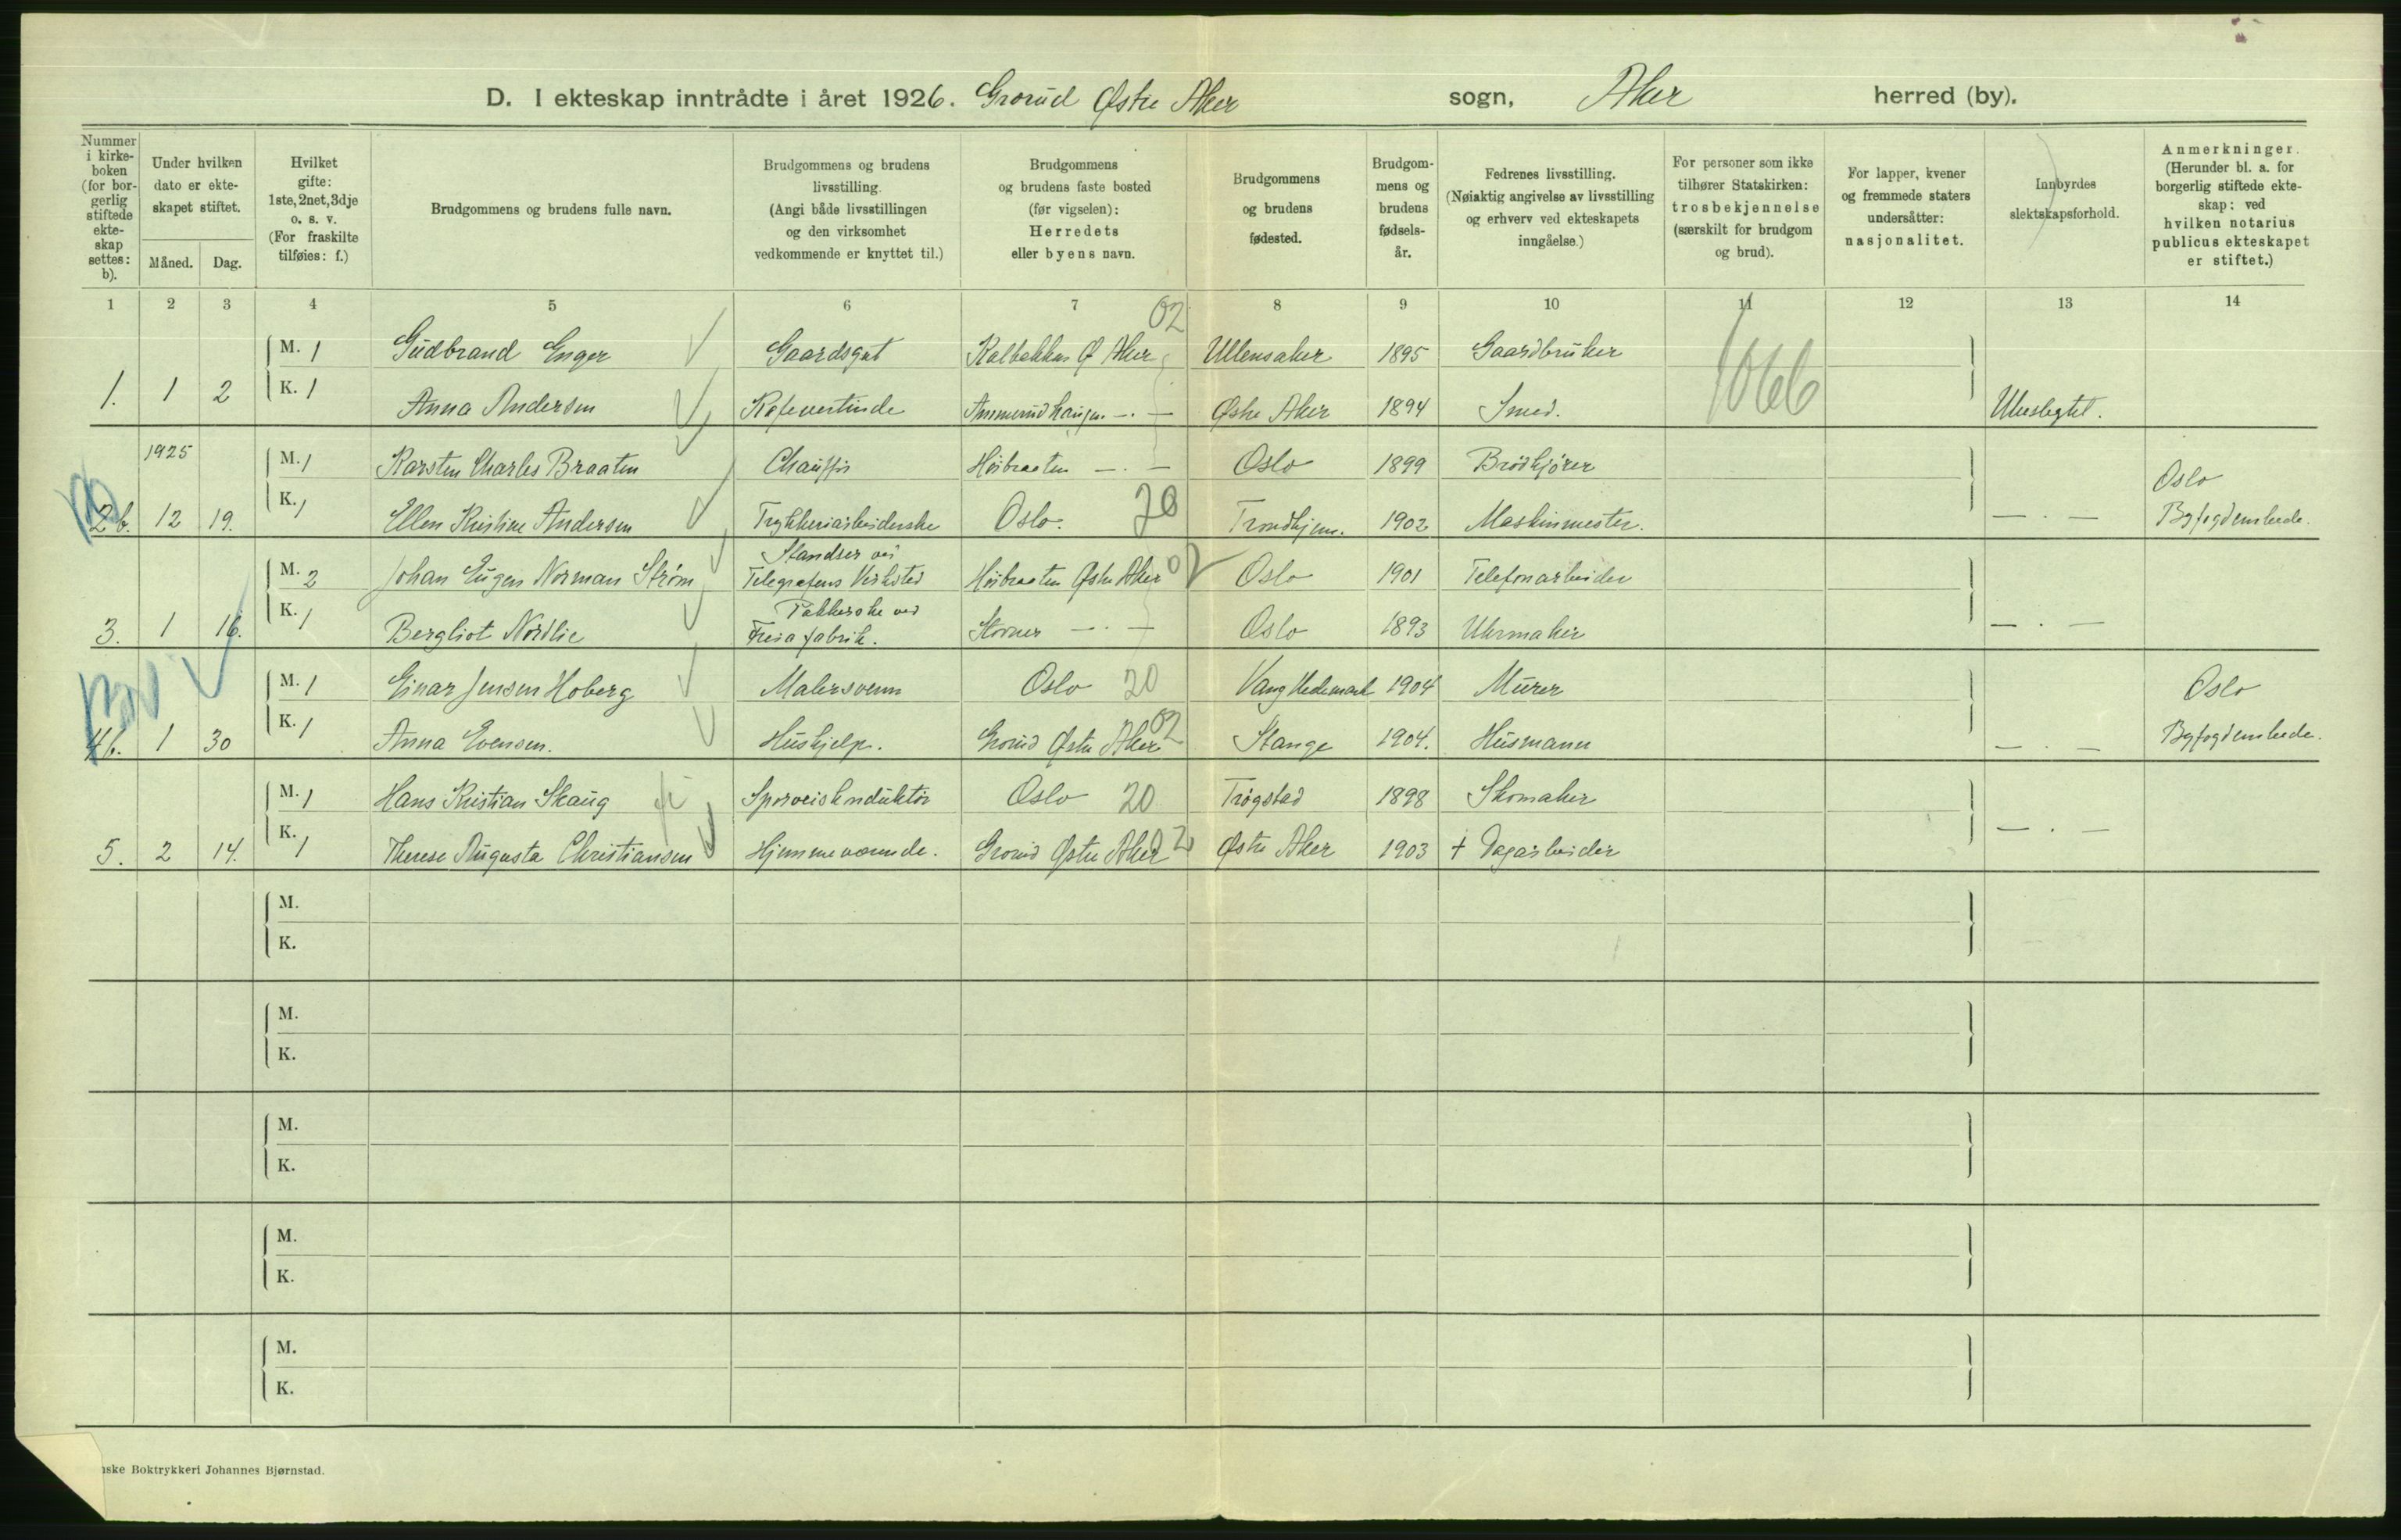 D. I ekteskap inntrådte i året 1926. Grorud Østre Aker sogn, Aker herred (by).
Nummer i kirkeboken (for borgerlig stiftede ekteskap settes: b).
Under hvilken dato er ekteskapet stiftet.
Måned. Dag.
Hvilket gifte: 1ste, 2net, 3dje o. s. v. (For fraskilte tilføies: f.)
Brudgommens og brudens fulle navn.
Brudgommens og brudens livsstilling. (Angi både livsstillingen og den virksomhet vedkommende er knyttet til.)
Brudgommens og brudens faste bosted (før vigselen): Herredets eller byens navn.
Brudgommens og brudens fødested.
Brudgommens og brudens fødselsår.
Fedrenes livsstilling. (Nøiaktig angivelse av livsstilling og erhverv ved ekteskapets inngåelse.)
For personer som ikke tilhører Statskirken: trosbekjennelse (særskilt for brudgom og brud).
For lapper, kvener og fremmede staters undersåtter: nasjonalitet.
Innbyrdes slektskapsforhold.
Anmerkninger. (Herunder bl. a. for borgerlig stiftede ekteskap: ved hvilken notarius publicus ekteskapet er stiftet.)
1 2 3 4 5 6 7 8 9 10 11 12 13 14
02
M. 1 Gudbrand Enger Gaardsgut Kalbakken Ø Aker Ullensaker 1895 Gaardbruker
1066
1. 1 2 K. 1 Anna Andersen Kafevertinde Ammerudhaugen — . — Østre Aker 1894 Smed. Ubeslegtet.
1925 M. 1 Karsten Charles Braaten Chauffør Høibraaten — . — Oslo 1899 Brødkjører Oslo
2 b. 12 19. K. 1 Ellen Kristine Andersen Trykkeriarbeiderske Oslo. 20 Trondhjem. 1902 Maskinmester. — . — Byfogdembede.
M. 2 Johan Eugen Norman Strøm Standser ved Telegrafens Verksted Høibraaten Østre Aker 02 Oslo 1901 Telefonarbeider
3. 1 16. K. 1 Bergliot Nordlie Pakkerske ved Freia fabrik. Stovner — . — Oslo 1893 Uhrmaker — . —
M. 1 Einar Jensen Hoberg Malersvenn Oslo 20 Vang Hedemark 1904 Murer Oslo
4 b. 1 30 K. 1 Anna Evensen. Hushjelp. Grorud Østre Aker 02 Stange 1904. Husmann — . — Byfogdembede.
M. 1 Hans Kristian Skaug Sporveiskonduktør Oslo 20 Trøgstad 1898 Skomaker
5. 2 14. K. 1 Therese Augusta Christiansen Hjemmeværende. Grorud Østre Aker 02 Østre Aker 1903 + Dagarbeider — . —
M.
K.
M.
K.
M.
K.
M.
K.
M.
K.
nske Boktrykkeri Johannes Bjørnstad.